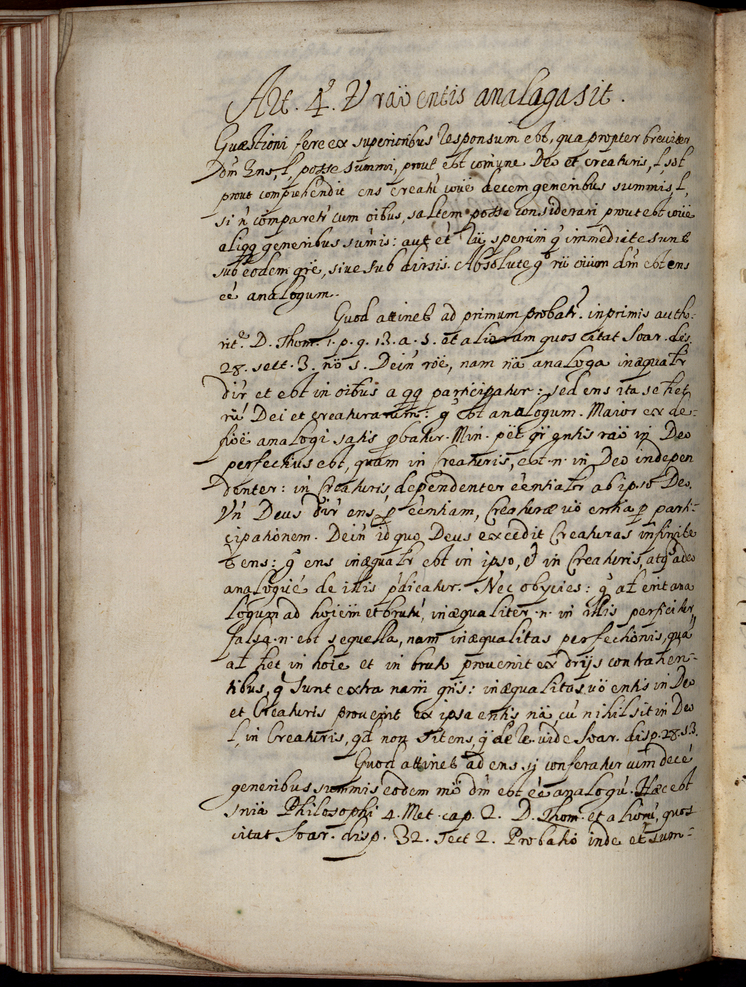 Art. 4.ᵒ Vt raõ entis analoga sit.
Quæstioni fere ex superioribus responsum est, qua propter breviter
dm̃ Ens, l, posse summi, prout est comũne Deo et creaturis, l, sol
prout comprehendit ens creatũ coũe decem generibus summis, l,
si ñ comparetr̃ cum oĩbus, saltem posse considerari prout est coũe
aliqq generibus sum̃is: aut et
sub eodem gñe, sive sub divsis. Absolute gº cũ oĩum dm̃ est ens
eẽ analogum.
Quod attinet ad primum probatr̃. inprimis autho-
ritᵉ D. Thom. 1. p. q. 13. a. 5. et aliorum quos citat Soar. des.
28. sect. 3. nõ 5. Dein̄ rõe, nam nã analoga inæqualr̃
dĩr et est in oĩbus a qq participatur: sed ens ita se het
Dei et creaturarum: gº est analogum. Maior ex de-
fiõe analogi satis pbatur. Min. pẽt qr̃ entis raõ in Deo
perfectius est, quam in Creaturis, est .n. in Deo indepen
denter: in Creaturis dependenter eẽntialr̃ ab ipso Deo.
Vñ Deus dĩr ens p eẽntiam, Creaturæ võ entia p parti-
cipationem. Dein̄ id quo Deus excedit Creaturas infinite
ẽ ens: gº ens inæqualr̃ est in ipso, et in Creaturis, atq adeo
analogicẽ de illis p̃dicatur. Nec obijcies: gº al̃ erit ana
logum ad hoĩem et brutũ, inæqualiter .n. in illis perficitur
falsa .n. est sequella, nam inæqualitas perfectionis, quã
al̃ het in hoĩe et in bruto provenit ex drĩjs contrahen-
tibus, q̃ sunt extra nam̃ gñis: inæqualitas võ entis in Deo
et Creaturis provenit ex ipsa entis nã, cũ nihil sit in Deo
l, in Creaturis, qd non sit ens, q̃ de re vide Soar. disp. 28. s. 3.
Quod attinet ad ens, ij conferatur cum decẽ
generibus summis eodem mõ dm̃ est eẽ analogũ. Hæc est
sn̄ia Philosophi 4. Met. cap. 2. D. Thom. et aliorũ, quos
citat Soar. disp. 32. sect 2. Probatio inde et sum-